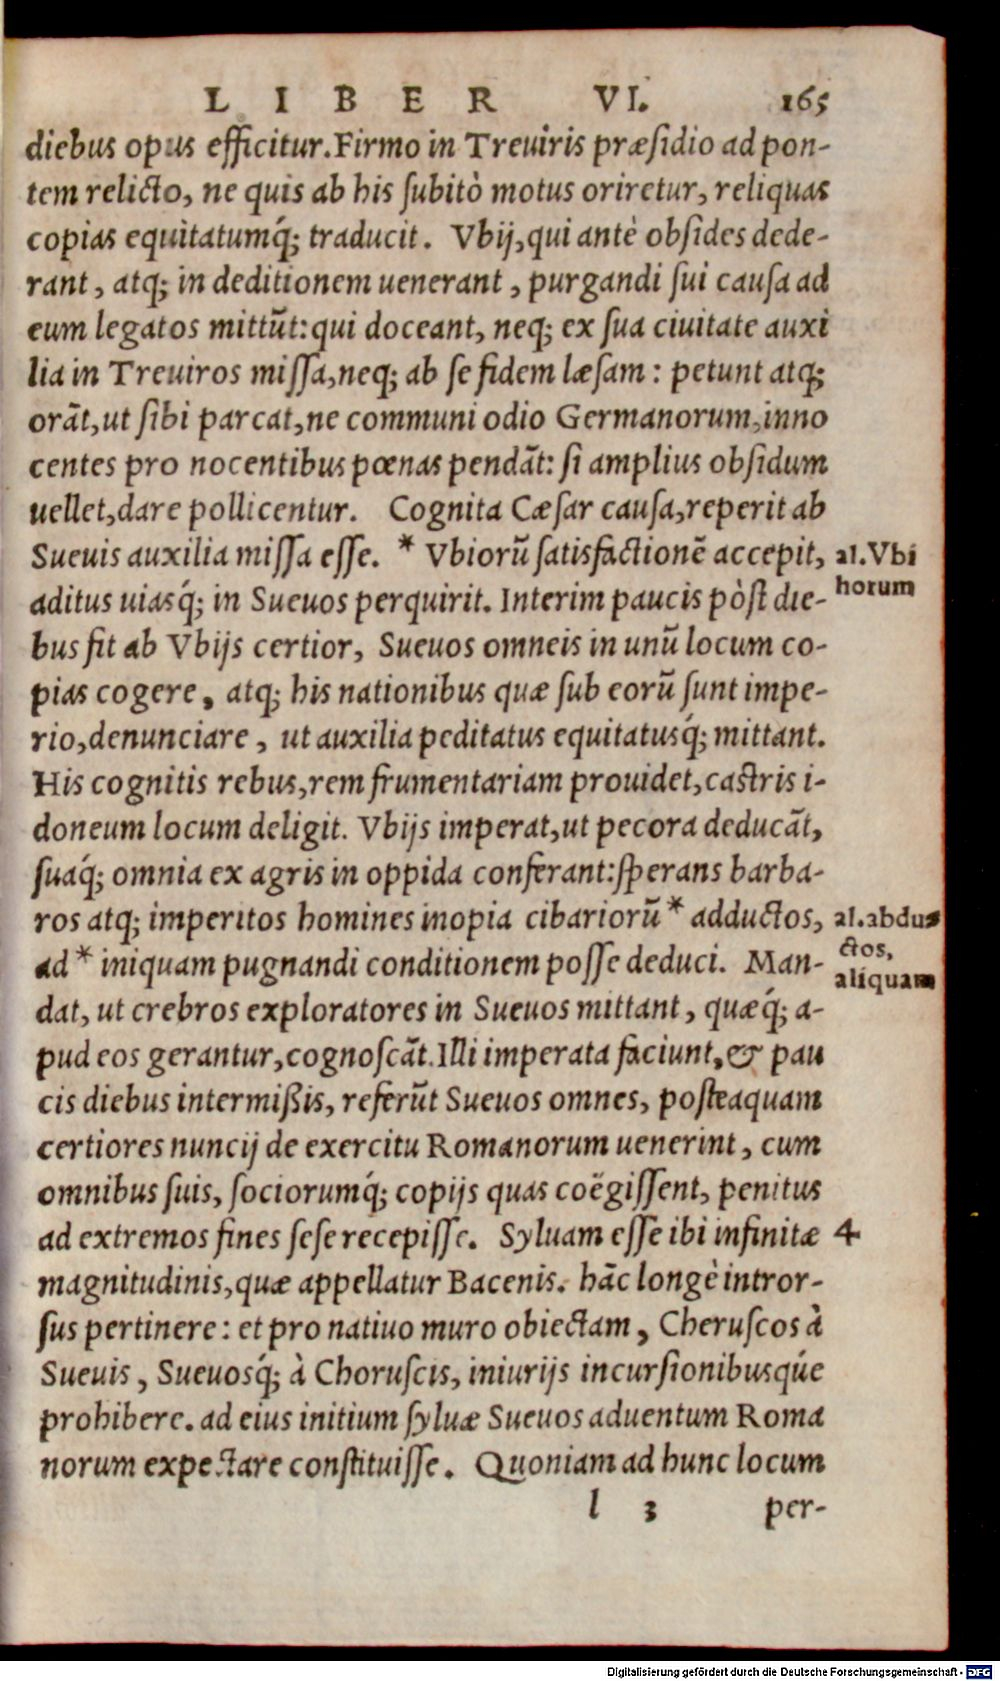 LIBER VI. 165
diebus opus efficitur. Firmo in Treuiris præſidio ad pon-
tem relicto, ne quis ab his ſubitò motus oriretur, reliquas
copias equitatumq́; traducit. Vbij, qui antè obſides dede-
rant, atq; in deditionem uenerant, purgandi ſui cauſa ad
eum legatos mittũt: qui doceant, neq; ex ſua ciuitate auxi
lia in Treuiros miſſa, neq; ab ſe fidem læſam: petunt atq;
orãt, ut ſibi parcat, ne communi odio Germanorum, inno
centes pro nocentibus pœnas pendãt: ſi amplius obſidum
uellet, dare pollicentur. Cognita Cæſar cauſa, reperit ab
Sueuis auxilia miſſa eſſe. * Vbiorũ ſatisfactionẽ accepit, al. Vbi
aditus uiasq́; in Sueuos perquirit. Interim paucis pòſt die- horum
bus fit ab Vbijs certior, Sueuos omneis in unũ locum co-
pias cogere, atq; his nationibus quæ ſub eorũ ſunt impe-
rio, denunciare, ut auxilia peditatus equitatusq́; mittant.
His cognitis rebus, rem frumentariam prouidet, caſtris i-
doneum locum deligit. Vbijs imperat, ut pecora deducãt,
ſuaq́; omnia ex agris in oppida conferant: ſperans barba-
ros atq; imperitos homines inopia cibariorũ * adductos, al. abdu
ctos,
ad * iniquam pugnandi conditionem poſſe deduci. Man- aliquam
dat, ut crebros exploratores in Sueuos mittant, quæq́; a-
pud eos gerantur, cognoſcãt. Illi imperata faciunt, & pau
cis diebus intermißis, referũt Sueuos omnes, poſteaquam
certiores nuncij de exercitu Romanorum uenerint, cum
omnibus ſuis, ſociorumq́; copijs quas coëgiſſent, penitus
ad extremos fines ſeſe recepiſſe. Syluam eſſe ibi infinitæ 4
magnitudinis, quæ appellatur Bacenis. hãc longè intror-
ſus pertinere: et pro natiuo muro obiectam, Cheruſcos à
Sueuis, Sueuosq́; à Choruſcis, iniurijs incurſionibusq́ue
prohibere. ad eius initium ſyluæ Sueuos aduentum Roma
norum expectare conſtituiſſe. Quoniam ad hunc locum
l 3 per-
Digitalisierung gefördert durch die Deutsche Forschungsgemeinschaft - DFG